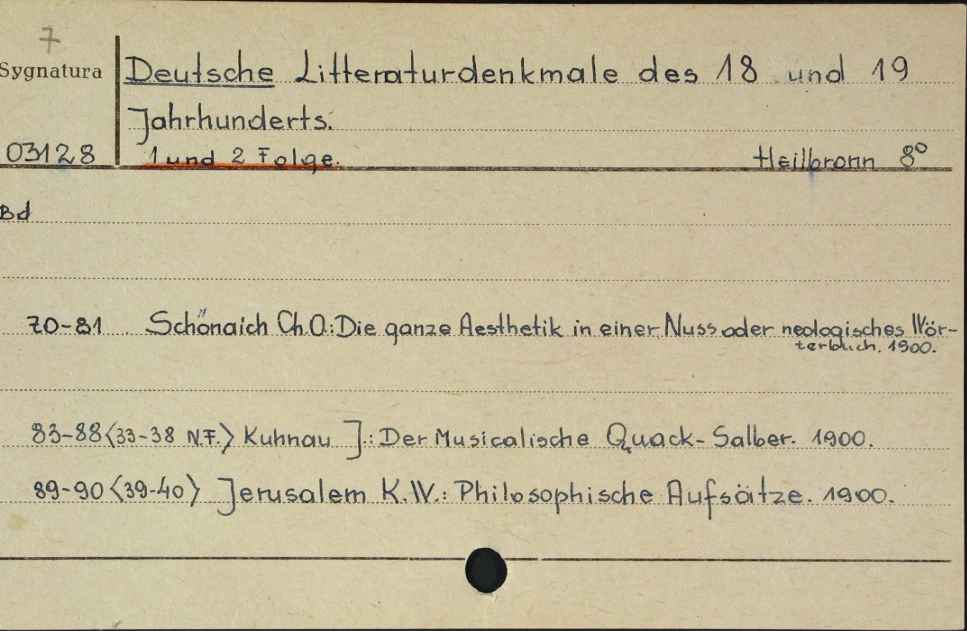 7
Sygnatura
Deutsche Litteraturdenkmale des 18 und 19
Jahrhunderts.
03128
1 und 2 Folge.
Heilbronn 8°
Bd
70-81 Schönaich Ch.O.: Die ganze Aesthetik in einer Nuss oder neologisches Wör-
terbuch. 1900.
83-88 <33-38 N.F.> Kuhnau J.: Der Musicalische Quack-Salber. 1900.
89-90 <39-40> Jerusalem K.W.: Philosophische Aufsätze. 1900.